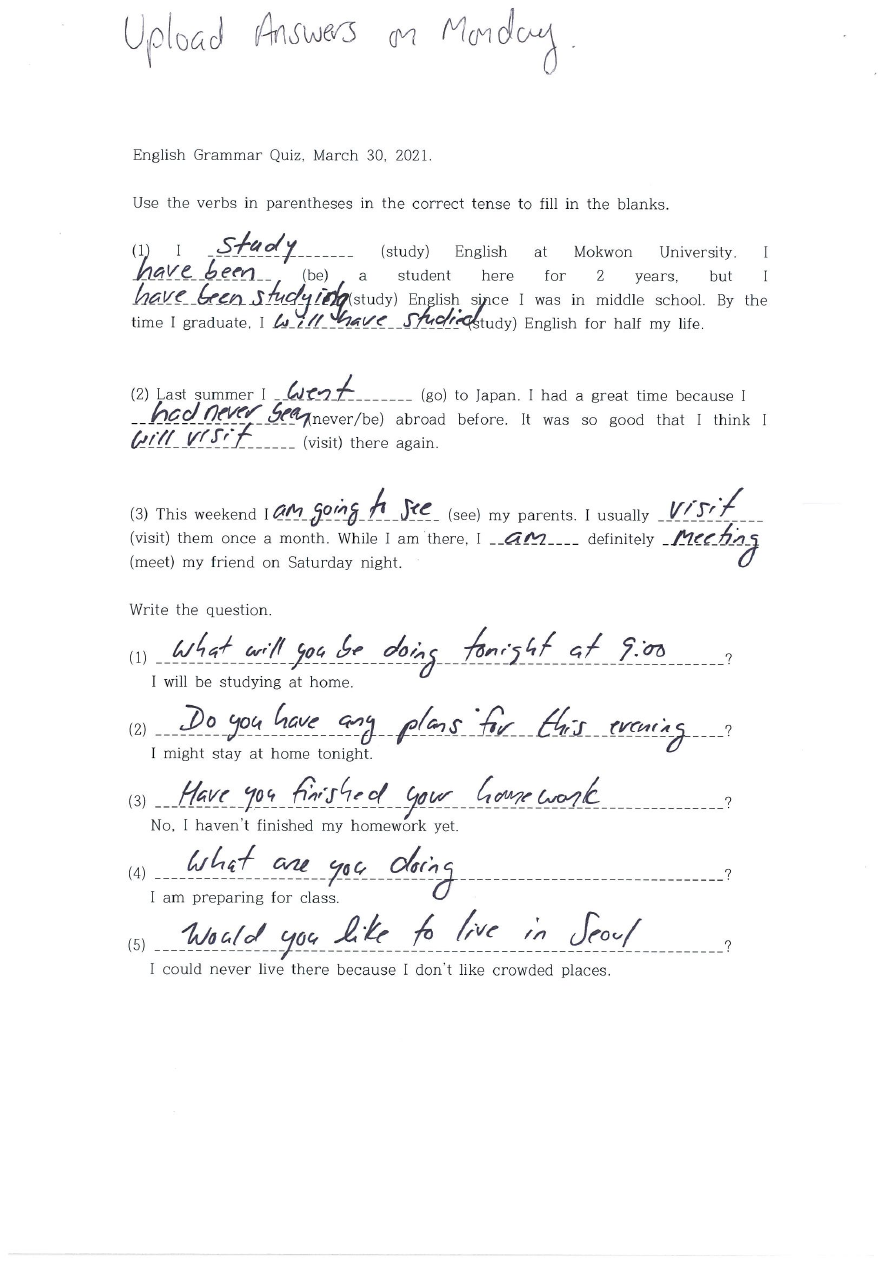 Upload Answers on Monday.
English Grammar Quiz, March 30, 2021.
Use the verbs in parentheses in the correct tense to fill in the blanks.
(1) I study (study) English at Mokwon University. I
have been (be) a student here for 2 years, but I
have been studying (study) English since I was in middle school. By the
time I graduate, I will have studied (study) English for half my life.
(2) Last summer I went (go) to Japan. I had a great time because I
had never been (never/be) abroad before. It was so good that I think I
will visit (visit) there again.
(3) This weekend I am going to see (see) my parents. I usually visit
(visit) them once a month. While I am there, I am definitely meeting
(meet) my friend on Saturday night.
Write the question.
(1) What will you be doing tonight at 9:00 ?
I will be studying at home.
(2) Do you have any plans for this evening ?
I might stay at home tonight.
(3) Have you finished your homework ?
No, I haven't finished my homework yet.
(4) What are you doing ?
I am preparing for class.
(5) Would you like to live in Seoul ?
I could never live there because I don't like crowded places.